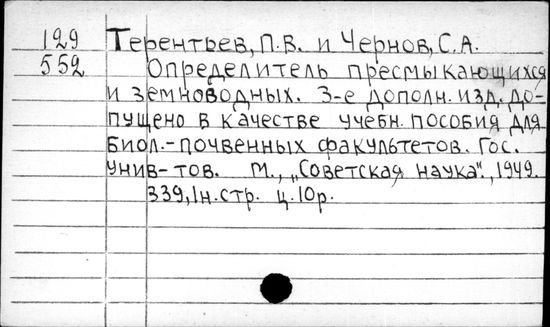 129 Терентьев, П.В. и Чернов, С.А.
552 Определитель пресмыкающихся
и земноводных. 3-е дополн. изд. до-
пущено в качестве учебн. пособия для
биол.-почвенных факультетов. Гос.
унив-тов. М., „Советская наука"., 1949.
339, 1н. стр. ц. 10р.